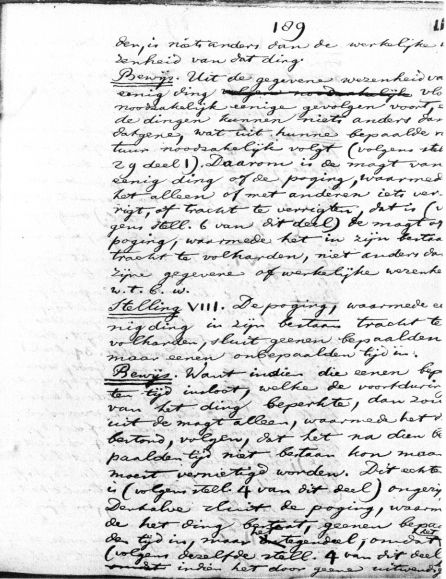 189
den, is niets anders dan de werkelijke
zenheid van dat ding.
Bewijs. Uit de gegevene wezenheid va
eenig ding volgen noodzakelijk vlo
noodzakelijk eenige gevolgen voort, e
de dingen kunnen niets anders dan
datgene, wat uit hunne bepaalde n
tuur noodzakelijk volgt (volgens stel
29 deel 1). Daarom is de magt van
eenig ding of de poging, waarmed
het alleen of met anderen iets ver-
rigt, of tracht te verrigten, dat is (v
gens stell. 6 van dit deel) de magt of
poging, waarmede het in zijn bestaa
tracht te volharden, niet anders da
zijne gegevene of werkelijke wezenh
w.t.b.w.
Stelling VIII. De poging, waarmede ee
nig ding in zijn bestaan tracht te
volharden, sluit geenen bepaalden
maar eenen onbepaalden tijd in.
Bewijs. Want indien die eenen bep
ten tijd insloot, welke de voortdurin
van het ding beperkte, dan zou
uit de magt alleen, waarmede het d
bestond, volgen, dat het na dien be
paalden tijd niet bestaan kon maar
moest vernietigd worden. Dit echte
is (volgens stell. 4 van dit deel) ongerij
Derhalve sluit de poging, waarm
de het ding bestaat, geenen bepa
den tijd in, maar integendeel, omdat
(volgens dezelfde stell. 4 van dit deel
indien het door geene uitwendig